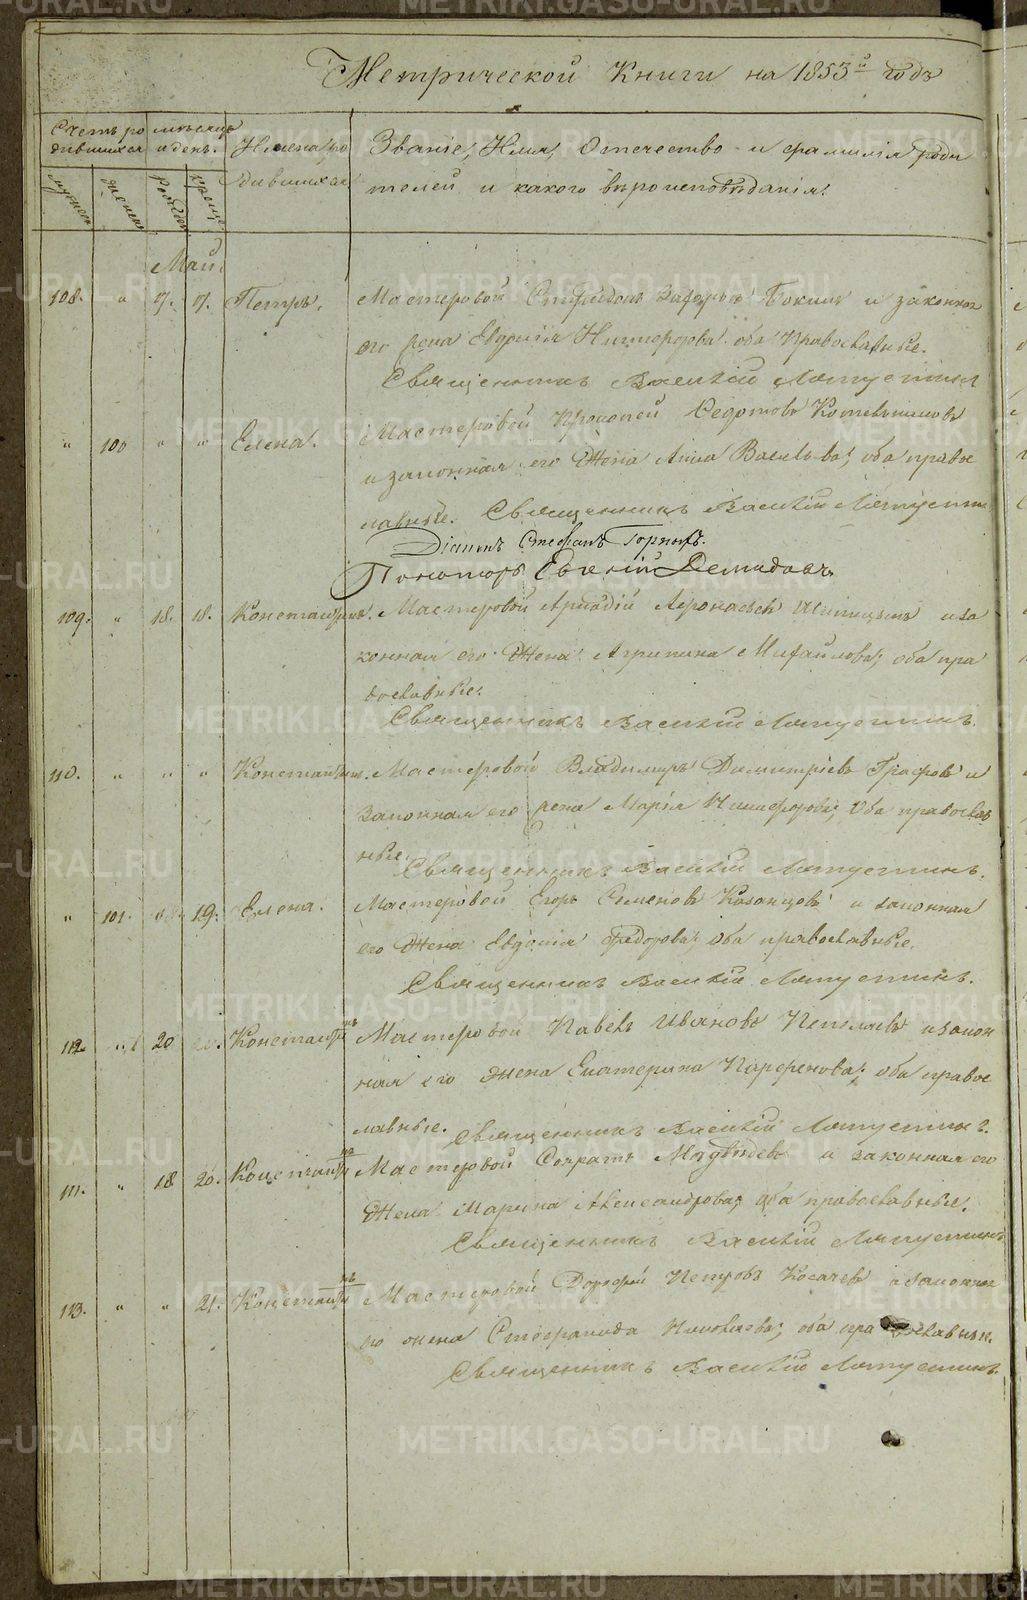 Метрической Книги на 1853й годъ
Счетъ ро
дившихся
мѣсяцъ
и день.
Имена ро
дившихся
Званіе, Имя, Отечество и фамилія роди
телей и какого вѣроисповѣданія.
Май.
108. " 17. 17. Петръ. Мастеровой Захаровъ и законная
его жена Евдокія Никифорова оба Православные.
Священникъ Василій Ляпустинъ
" 100 " " Елена. Мастеровой Прокопей Федотовъ Котельниковъ
и законная его Жена Анна Васильева; оба правос
лавные. Священникъ Василій Ляпустинъ
Діаконъ Стефанъ Горныхъ.
Пономорь Евгеній Демидовъ
109. " 18. 18. Константинъ. Мастеровой Аркадій Афонасьевъ и за
конная его Жена Агрипина Михайлова; оба пра
вославные.
Священникъ Василій Ляпустинъ.
110. " " " Константинъ. Мастеровой Владимиръ Димитріевъ Графовъ и
законная его жена Марія Никифорова; Оба православ
ные.
Священникъ Василій Ляпустинъ.
" 101. 19. Елена. Мастеровой Егоръ Семеновъ Казанцовъ и законная
его Жена Евдокія Федорова; оба православные.
Священникъ Василій Ляпустинъ.
112. 20 Константинъ Мастеровой Павелъ Ивановъ и закон
ная его жена Екатерина Парфенова; оба правос
лавные. Священникъ Василій Ляпустинъ.
111. " 18 20. Константинъ Мастеровой Сократъ Медвѣдевъ и законная его
Жена Марина Александрова; оба православные.
Священникъ Василій Ляпустинъ
113. " " 21. Константинъ Мастеровой Дорофей Петровъ Косачевъ и законная
го жена Стефанида Николаева; оба православные.
Священникъ Василій Ляпустинъ.
METRIKI.GASO-URAL.RU